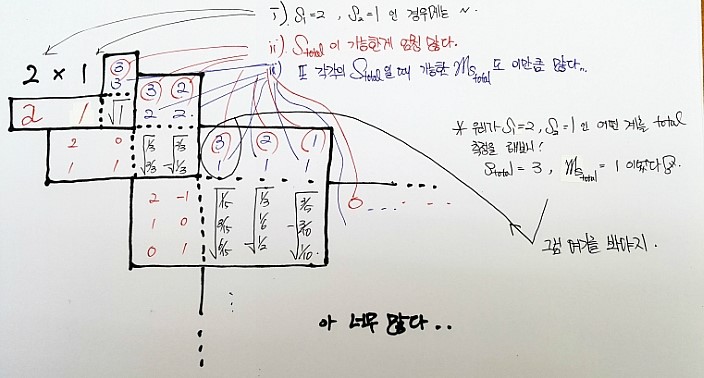 i). S₁=2 , S₂=1 인 경우에는 ~.
ii). S total 이 가능한게 엄청 많다.
iii) 또 각각의 S total 일 때 가능한 m S total 또 이만큼 많다..
2 × 1
3
3
3 2
2 1 √1 2 2
2 0 √1/3 √2/3 3 2 1
1 1 √2/3 -√1/3 1 1 1
2 -1 √1/15 √1/3 √3/5
1 0 √8/15 √1/6 -√3/10
0 1 √6/15 -√1/2 √1/10
0
* 우리가 S₁=2, S₂=1 인 어떤 계를 total
측정을 해보니!
S total = 3 , m S total = 1 이었다
그럼 여기를 봐야지.
아 너무 많다..